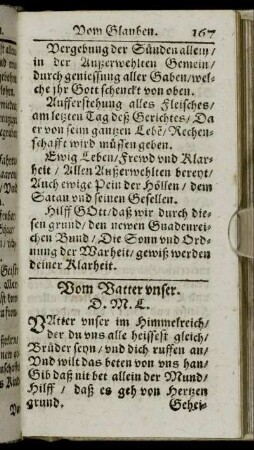 Vom Glauben. 167
Vergebung der Sünden allein/
in der Außerwehlten Gemein/
durch geniessung aller Gaben/wel-
che jhr Gott schenckt von oben.
Aufferstehung alles Fleisches/
am letzten Tag deß Gerichtes/ Da
er von seim gantzen Lebē/ Rechen-
schafft wird müssen geben.
Ewig Leben/Frewd vnd Klar-
heit / Allen Außerwehlten bereyt/
Auch ewige Pein der Höllen / dem
Satan vnd seinen Gesellen.
Hilff GOtt/daß wir durch die-
sen grund/ den newen Gnadenrei-
chen Bund / Die Sonn vnd Ord-
nung der Warheit/ gewiß werden
deiner Klarheit.
Vom Vatter vnser.
D. M. L.
VAtter vnser im Himmelreich/
der du vns alle heissest gleich/
Brüder seyn/ vnd dich ruffen an/
Vnd wilt das beten von vns han/
Gib daß nit bet allein der Mund/
Hilff / daß es geh von Hertzen
grund. Gehei-